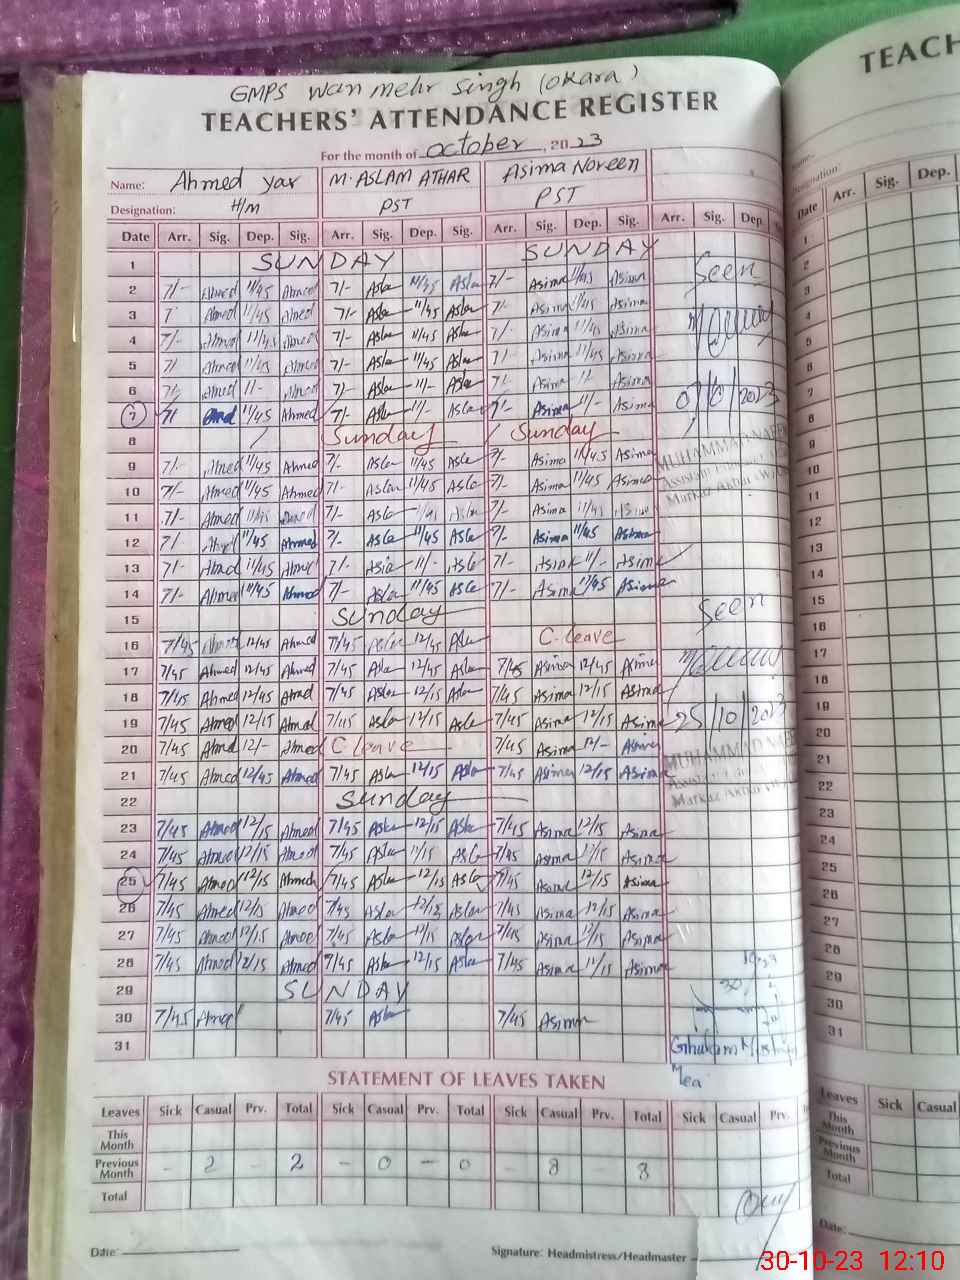 GMPS wan mehr singh (okara)
TEACHERS' ATTENDANCE REGISTER
For the month of October, 2023
Name: Ahmed yar M. ASLAM ATHAR Asima Noreen
Designation: H/M PST PST
Date Arr. Sig. Dep. Sig. Arr. Sig. Dep. Sig. Arr. Sig. Dep. Sig. Arr. Sig. Dep.
1 SUNDAY SUNDAY
2 7/- Ahmed 11/45 Ahmed 7/- Asla 11/45 Asla 7/- Asima 11/45 Asima
3 7 Ahmed 11/45 Ahmed 7/- Asla 11/45 Asla 7/- Asima 11/45 Asima
4 7/- Ahmed 11/45 Ahmed 7/- Asla 11/45 Asla 7/- Asima 11/45 Asima
5 7/ Ahmed 11/45 Ahmed 7/- Asla 11/45 Asla 7/- Asima 11/45 Asima
6 7/- Ahmed 11/- Ahmed 7/- Asla 11/- Asla 7/- Asima 11/- Asima
7 7/ 11/45 Ahmed 7/- Asla 11/- Asla 7/- Asima 11/- Asima
8 Sunday Sunday
9 7/- Ahmed 11/45 Ahmed 7/- Asla 11/45 Asla 7/- Asima 11/45 Asima
10 7/- Ahmed 11/45 Ahmed 7/- Asla 11/45 Asla 7/- Asima 11/45 Asima
11 7/- Ahmed 11/45 Ahmed 7/- Asla 11/45 Asla 7/- Asima 11/45 Asima
12 7/- Ahmed 11/45 Ahmed 7/- Asla 11/45 Asla 7/- Asima 11/45 Asima
13 7/- Ahmed 11/45 Ahmed 7/- Asla 11/- Asla 7/- Asima 11/- Asima
14 7/- Ahmed 11/45 Ahmed 7/- Asla 11/45 Asla 7/- Asima 11/45 Asima
15 Sunday
16 7/45 Ahmed 12/45 Ahmed 7/45 Asla 12/45 Asla C. leave
17 7/45 Ahmed 12/45 Ahmed 7/45 Asla 12/45 Asla 7/45 Asima 12/45 Asima
18 7/45 Ahmed 12/45 Ahmed 7/45 Asla 12/15 Asla 7/45 Asima 12/15 Asima
19 7/45 Ahmed 12/15 Ahmed 7/45 Asla 12/15 Asla 7/45 Asima 12/15 Asima
20 7/45 Ahmed 12/- Ahmed C leave 7/45 Asima 12/- Asima
21 7/45 Ahmed 12/45 Ahmed 7/45 Asla 12/15 Asla 7/45 Asima 12/15 Asima
22 Sunday
23 7/45 Ahmed 12/15 Ahmed 7/45 Asla 12/15 Asla 7/45 Asima 12/15 Asima
24 7/45 Ahmed 12/15 Ahmed 7/45 Asla 12/15 Asla 7/45 Asima 12/15 Asima
25 7/45 Ahmed 12/15 Ahmed 7/45 Asla 12/15 Asla 7/45 Asima 12/15 Asima
26 7/45 Ahmed 12/15 Ahmed 7/45 Asla 12/15 Asla 7/45 Asima 12/15 Asima
27 7/45 Ahmed 12/15 Ahmed 7/45 Asla 12/15 Asla 7/45 Asima 12/15 Asima
28 7/45 Ahmed 12/15 Ahmed 7/45 Asla 12/15 Asla 7/45 Asima 12/15 Asima
29 SUNDAY
30 7/45 Ahmed 7/45 Asla 7/45 Asima
31
Seen
07/10/2023
MUHAMMAD
Seen
25/10/2023
MUHAMMAD
Mea
STATEMENT OF LEAVES TAKEN
Leaves Sick Casual Prv. Total Sick Casual Prv. Total Sick Casual Prv. Total Sick Casual Prv.
This Month
Previous Month - 2 - 2 - 0 - 0 - 8 - 8
Total
Date: Signature: Headmistress/Headmaster
TEACH
Designation:
Date Arr. Sig. Dep.
1
2
3
4
5
6
7
8
9
10
11
12
13
14
15
16
17
18
19
20
21
22
23
24
25
26
27
28
29
30
31
Leaves Sick Casual
This Month
Previous Month
Total
Date:
30-10-23 12:10